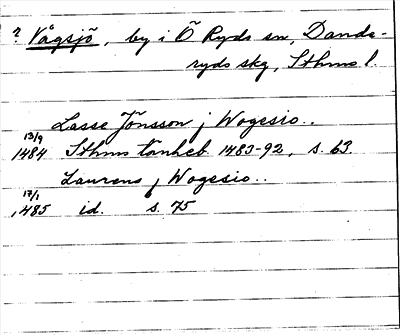 ? Vågsjö, by i Ö Ryds sn, Danda-
ryds skg, Sthms l.
Lasse Jönsson j Wogesio..
13/9
1484 Sthms tänkeb. 1483-92, s. 63.
Laurens j Wogesio..
17/1
1485 id. s. 75